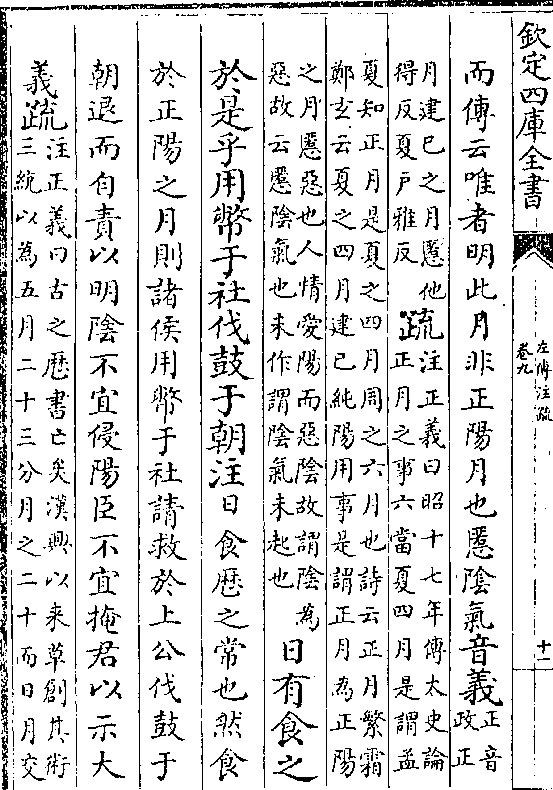 欽定四庫全書
左傳注疏
卷九
十一
而傳云唯者明此月非正陽月也慝陰氣音義正音
政正
月建巳之月慝他
得反夏戸雅反疏注正義曰昭十七年傳太史論
正月之事六當夏四月是謂孟
夏知正月是夏之四月周之六月也詩云正月繁霜
鄭玄云夏之四月建巳純陽用事是謂正月為正陽
之月慝惡也人情愛陽而惡陰故謂陰為
惡故云慝陰氣也未作謂陰氣未起也日有食之
於是乎用幣于社伐鼓于朝注日食厯之常也然食
於正陽之月則諸侯用幣于社請救於上公伐鼓于
朝退而自責以明陰不宜侵陽臣不宜掩君以示大
義疏注正義曰古之厯書亡矣漢興以来草創其術
三統以為五月二十三分月之二十而日月交